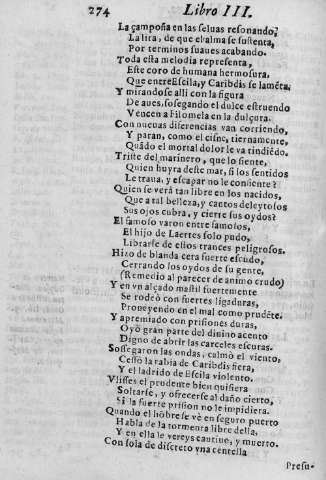 274 Libro III.
La çampoña en las seluas resonando,
La lira, de que el alma se sustenta,
Por terminos suaues acabando.
Toda esta melodia representa,
Este coro de humana hermosura.
Que entre Escila, y Caribdis se lamẽta.
Y mirandose alli con la figura
De aues, sosegando el dulce estruendo
Vencen a Filomela en la dulçura.
Con nueuas diferencias van corriendo,
Y paran, como el cisne, tiernamente,
Quãdo el mortal dolor le va tiñiẽdo.
Triste del marinero, que lo siente,
Quien huyra deste mar, si los sentidos
Le traua, y escapar no le consiente?
Quien se verà tan libre en los nacidos,
Que a tal belleza, y cantos deleytosos
Sus ojos cubra, y cierre sus oydos?
El famoso varon entre famosos,
El hijo de Laertes solo pudo,
Librarse de ellos trances peligrosos.
Hizo de blanda cera fuerte escudo,
Cerrando los oydos de su gente,
(Remedio al parecer de animo crudo)
Y en vn alçado mastil fuertemente
Se rodeò con fuertes ligaduras,
Proueyendo en el mal como prudẽte.
Y apremiado con prisiones duras,
Oyò gran parte del diuino acento
Digno de abrir las carceles escuras.
Sossegaron las ondas, calmò el viento,
Cessò la rabia de Caribdis fiera,
Y el ladrido de Escila violento.
Vlisses el prudente bien quisiera
Soltarse, y ofrecerse al daño cierto,
Si la fuerte prision no le impidiera.
Quando el hõbre se vè en seguro puerto
Habla de la tormenta libre della,
Y en ella le vereys cautiuo, y muerto.
Con sola de discreto vna centella
Presu-